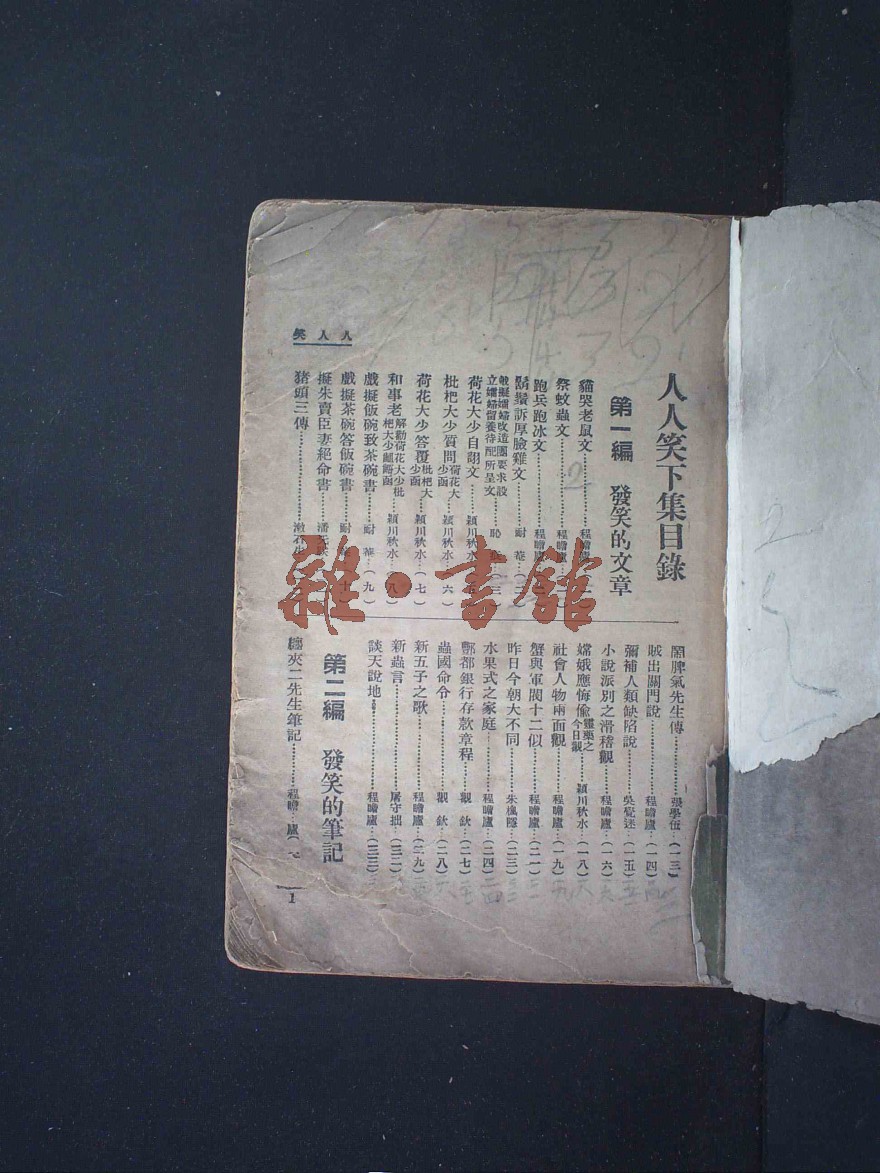 人人笑
人人笑下集目錄
第一編 發笑的文章
貓哭老鼠文………程瞻廬
祭蚊蟲文………程瞻廬
跑兵跑冰文………程瞻廬
鬍鬚訴厚臉雞文………耐菴
戲擬孀婦改造團要求設立孀婦留養待配所呈文………恥
荷花大少自翮文………潁川秋水
枇杷大少質問荷花大少函………潁川秋水…(六)
荷花大少答覆枇杷大少函………潁川秋水…(七)
和事老解勸荷花大少枇杷大少齟齬函………潁川秋水…(八)
戲擬飯碗致茶碗書………耐菴…(九)
戲擬茶碗答飯碗書………耐
擬朱買臣妻絕命書………潘
豬頭三傳………漱石生
鬧脾氣先生傳………張學伍…(一三)
賊出關門說………程瞻廬…(一四)
彌補人類缺陷說………吳覺迷…(一五)
小說派別之滑稽觀………程瞻廬…(一六)
嫦娥應悔偸靈藥之今日觀………潁川秋水…(一八)
社會人物兩面觀………程瞻廬…(一九)
蟹與軍閥十二似………程瞻廬…(二一)
昨日今朝大不同………朱楓隱…(二三)
水果式之家庭………程瞻廬…(二四)
酆都銀行存款章程………觀欽…(二七)
蟲國命令………觀欽…(二八)
新五子之歌………程瞻廬…(二九)
新蟲言………屠守拙…(三二)
談天說地………程瞻廬…(三三)
第二編 發笑的筆記
夾二先生筆記………程瞻廬
1
雜·書館